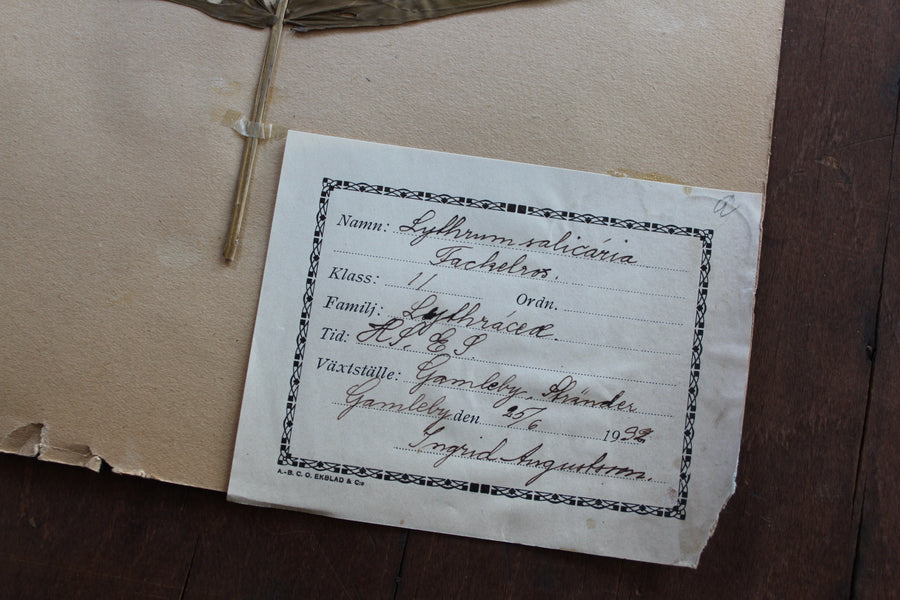 Namn: Lythrum salicária
Fackelros.
Klass: 11 Ordn.
Familj: Lythráceæ.
Tid: HS, ES.
Växtställe: Gamleby. Stränder
Gamleby den 25/6 1932
Ingrid Augustsson.
A.-B. C. O. EKBLAD & C:o